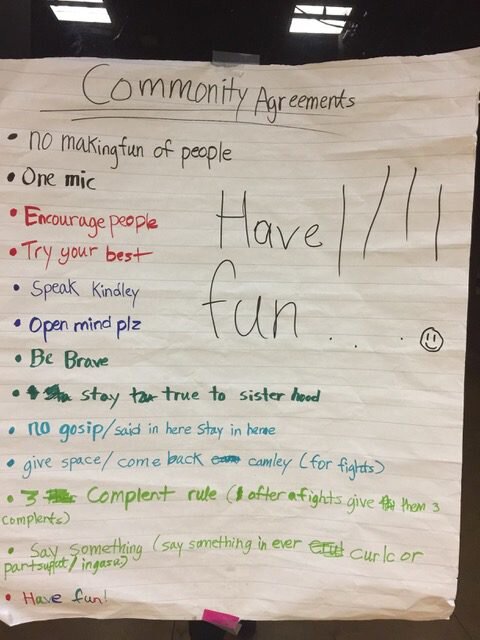 Commonity Agreements
• no makingfun of people
• One mic
• Encourage people
• Try your best
• Speak Kindley
• Open mind plz
• Be Brave
• stay true to sister hood
• no gosip/said in here stay in here
• give space/come back camley (for fights)
• 3 Complent rule (after a fights give them 3
complents)
• Say something (say something in ever curlc or
• Have fun!
Have
fun....